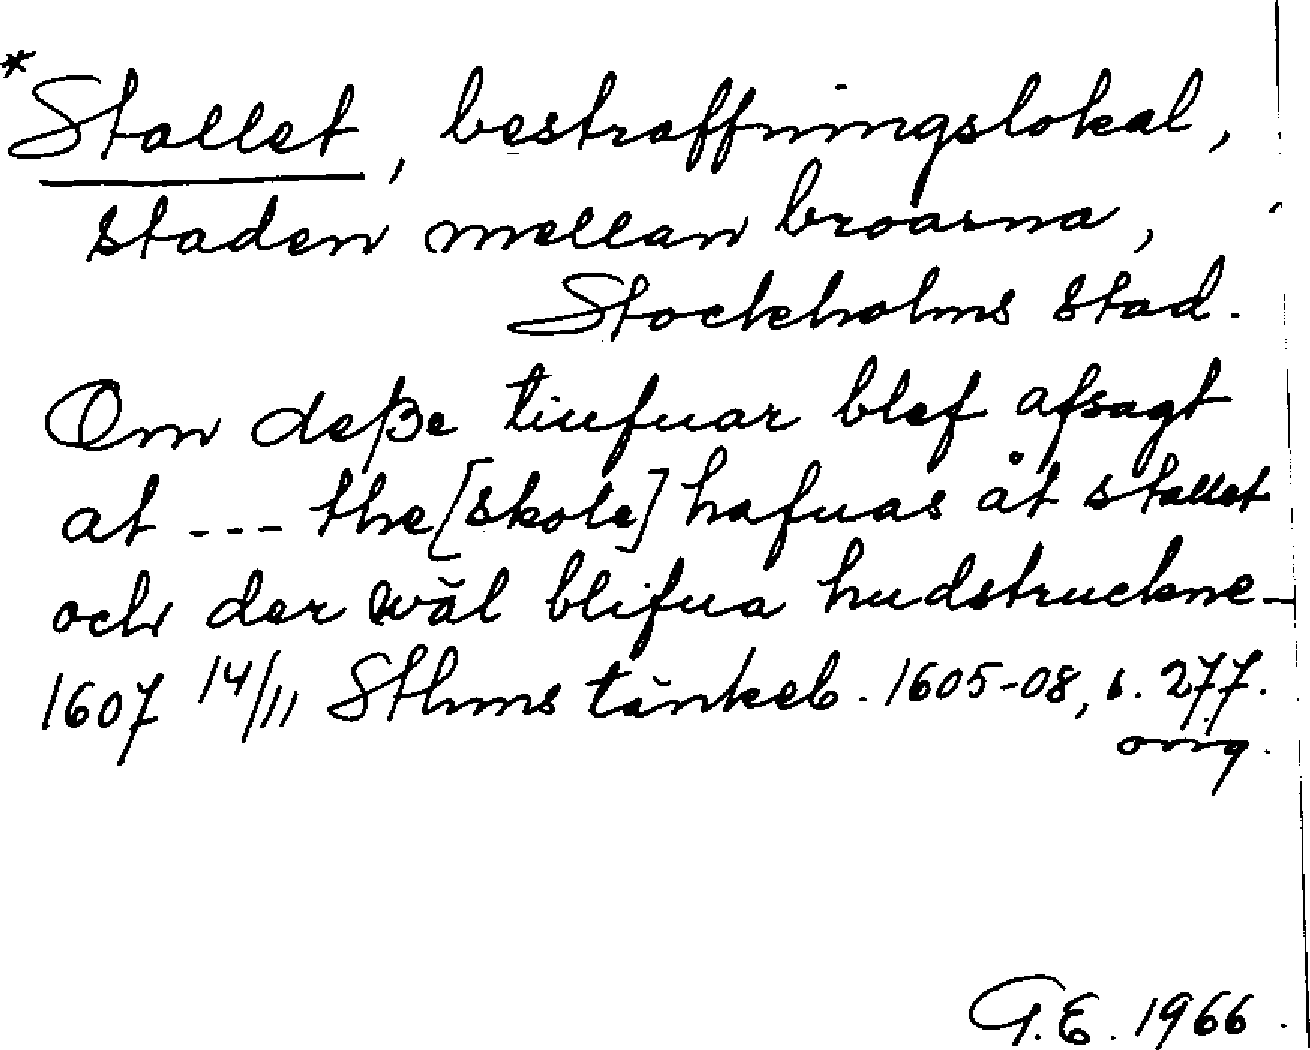 *Stallet, bestraffningslokal,
staden mellan broarna,
Stockholms stad.
Om deße tiufuar blef afsagt
at --- the [skole] hafuas åt stallet
och der wäl blifua hudstruckne-
1607 14/11 Sthms tänkeb. 1605-08, s. 277.
orig.
G.E. 1966.